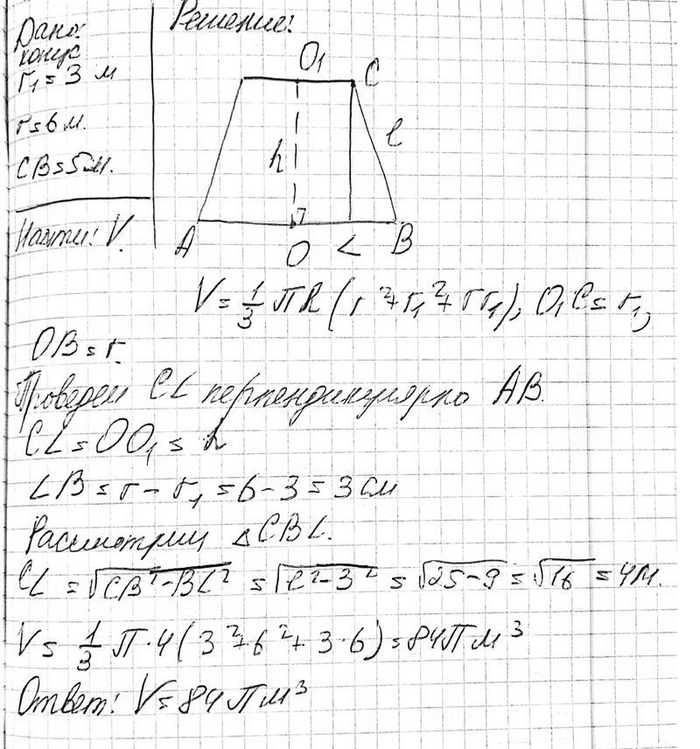 Дано:
конус
r₁ = 3 м
r = 6 м.
CB = 5 м.
Найти: V.
Решение:
O₁
C
l
h
A
O
L
B
V = 1/3 πh (r² + r₁² + rr₁), O₁C = r₁,
OB = r.
Проведем CL перпендикулярно AB.
CL = OO₁ = h
LB = r - r₁ = 6 - 3 = 3 см
Рассмотрим △CBL.
CL = √(CB² - BL²) = √(l² - 3²) = √(25 - 9) = √16 = 4 м.
V = 1/3 π · 4 (3² + 6² + 3 · 6) = 84π м³
Ответ: V = 84π м³